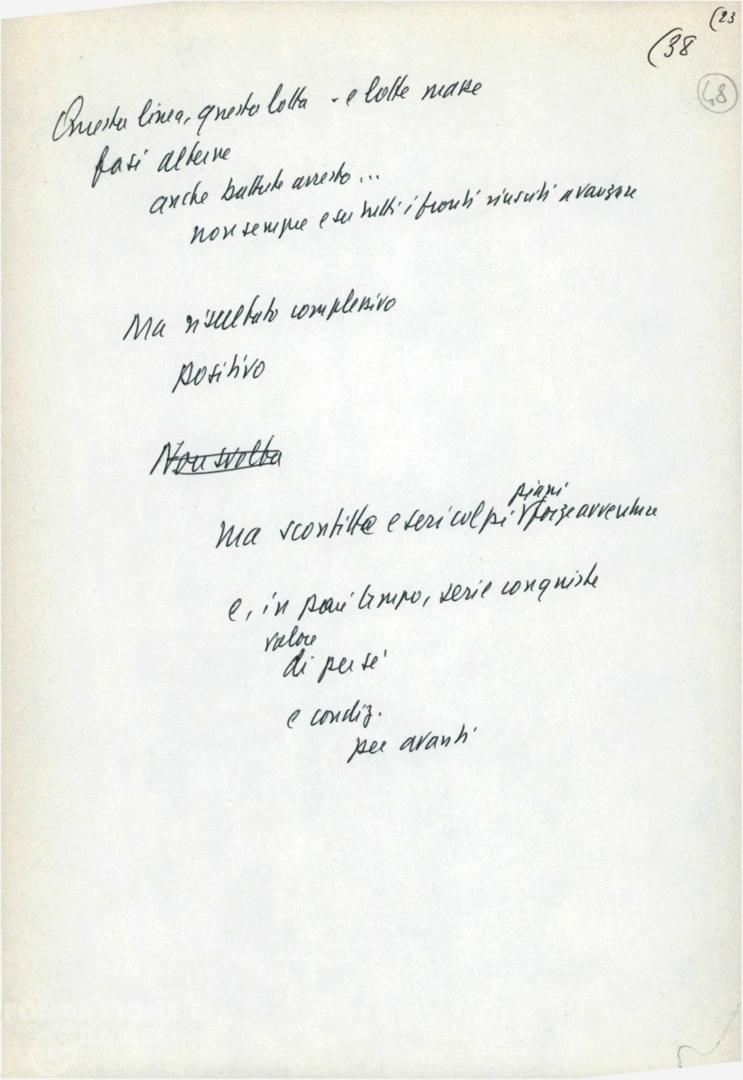 (23
(38
48
Questa linea, questa lotta - e lotte masse
fasi alterne
anche battute arresto...
non sempre e su tutti i fronti riusciti avanzare
Ma risultato complessivo
positivo
Non svolta
piani
Ma sconfitte e seri colpi forze avventura
e, in pari tempo, serie conquiste
valore
di per sé
e condiz.
per avanti